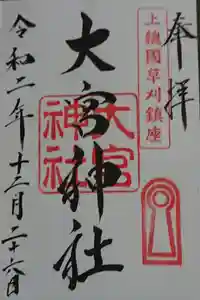 奉拝
上総國草刈鎮座
大宮神社
大宮神社
令和二年十二月二十六日